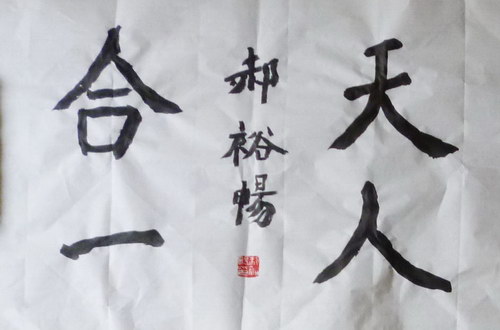 天人
合一
郝裕暢